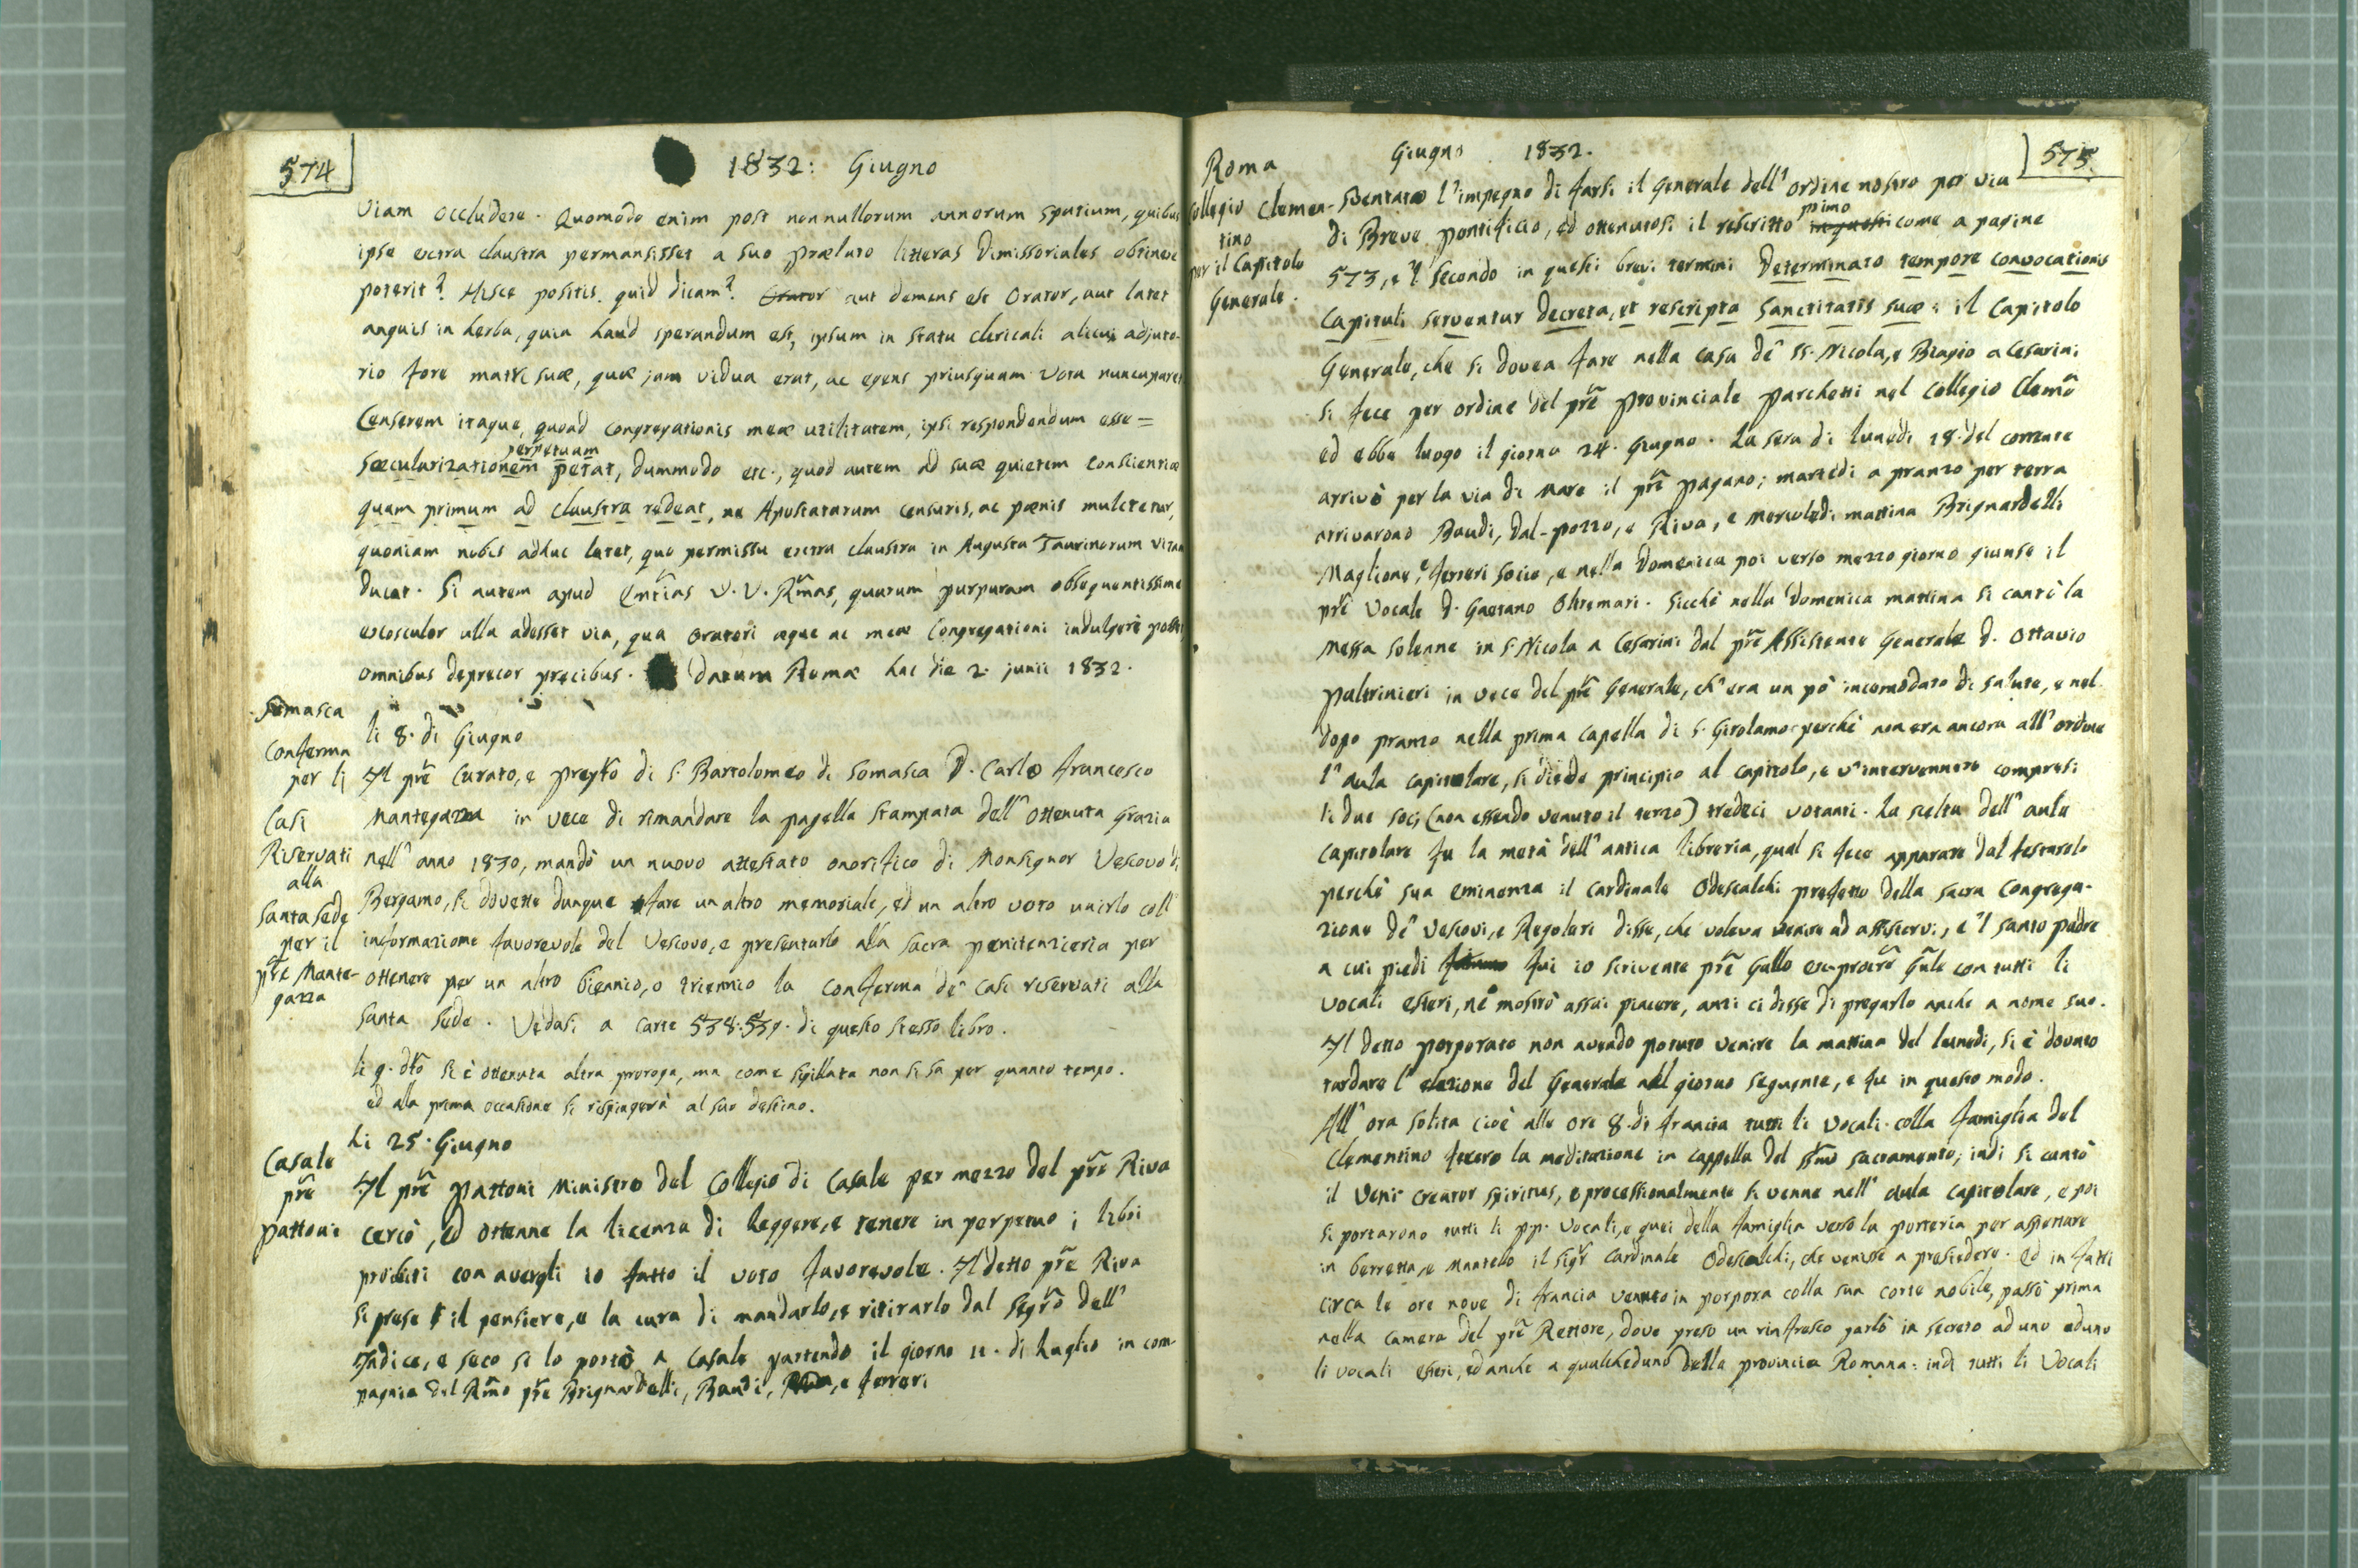 574
1832: Giugno
viam occludere. Quomodo enim post nonnullorum annorum spatium, quibus
ipse extra claustra permansisset a suo Prælato litteras Dimissoriales obtinere
poterit? Hisce positis quid dicam? Orator aut demens est Orator, aut latet
anguis in herba, quia haud sperandum est, ipsum in statu clericali alicui adjuto-
rio fore matri suæ, quæ jam vidua erat, ac egens priusquam vota nuncuparet
Censerem itaque, quoad congregationis meæ utilitatem, ipsi respondendum esse =
perpetuam
Sæcularizationem petat, dummodo etc., quod autem ad suæ quietem conscientiæ
quam primum ad claustra redeat, ne Apostatarum censuris, ac pænis mulctetur,
quoniam nobis adhuc latet, quo permissu extra claustra in Augusta Taurinorum vitam
ducat. Si autem apud Emĩas V. V. Rm̃as, quarum purpuram obsequentissime
exosculor ulla adesset via, qua Oratori æque ac meæ Congregationi indulgeri posset
omnibus deprecor precibus. Datum Romæ hac die 2. junii 1832.
Somasca
Conferma
per li
Casi
Riservati
alla
Santa Sede
per il
pr̃e Mante-
gazza
li 8. di Giugno
Il pr̃e Curato, e Prep̃to di S. Bartolomeo di Somasca D. Carlo Francesco
Mantegazza in vece di rimandare la pagella stampata dell' ottenuta Grazia
nell' anno 1830, mandò un nuovo attestato onorifico di Monsignor Vescovo di
Bergamo, si dovette dunque fare un altro memoriale, ed un altro voto unirlo coll'
informazione favorevole del Vescovo, e presentarlo alla sacra penitenzieria per
ottenere per un altro biennio, o triennio la conferma de' casi riservati alla
Santa Sede. Vedasi a carte 538.539. di questo stesso libro.
li 9. dt̃o si è ottenuta altra proroga, ma come sigillata non si sa per quanto tempo.
ed alla prima occasione si rispingerà al suo destino.
Casale
pr̃e
Pattoni
Li 25. Giugno
Il pr̃e Pattoni Ministro del Collegio di Casale per mezzo del pr̃e Riva
cercò, ed ottenne la licenza di leggere, e tenere in perpetuo i libri
proibiti con avergli io fatto il voto favorevole. Il detto pr̃e Riva
si prese il pensiere, e la cura di mandarlo, e ritirarlo dal Segr̃o dell'
Indice, e seco se lo portò a Casale partendo il giorno 11. di Luglio in com-
pagnia del Rm̃o pr̃e Brignardelli, Baudi, e Ferreri
Roma
Collegio Clemen-
tino
per il Capitolo
Generale.
Giugno 1832.
575
Sventato l'impegno di farsi il Generale dell' ordine nostro per via
primo
di Breve pontificio, ed ottenutosi il rescritto in questi come a pagine
573, e 'l secondo in questi brevi termini Determinato tempore convocationis
Capituli serventur decreta, et rescripta Sanctitatis suæ: il Capitolo
Generale, che si dovea fare nella casa de' SS. Nicola, e Biagio a Cesarini
si fece per ordine del pr̃e Provinciale Parchetti nel Collegio Clem̃o
ed ebbe luogo il giorno 24. Giugno. La sera di lunedì 18. del corrente
arrivò per la via di mare il pr̃e Pagano; martedì a pranzo per terra
arrivarono Baudi, Dal-pozzo, e Riva, e mercoledì mattina Brignardelli
Maglione, e Ferreri socio, e nella Domenica poi verso mezzo giorno giunse il
pr̃e Vocale D. Gaetano Oltremari. Sicchè nella Domenica mattina si cantò la
messa solenne in S. Nicola a Cesarini dal pr̃e Assistente Generale D. Ottavio
Paltrinieri in vece del pr̃e Generale, ch'era un pò incomodato di salute, e nel
dopo pranzo nella prima capella di S. Girolamo perchè non era ancora all'ordine
l'aula capitolare, si diede principio al capitolo, e v'intervennero compresi
li due socj (non essendo venuto il terzo) tredeci votanti. La scelta dell'aula
capitolare fu la metà dell'antica libreria, qual si fece apparare dal festarolo
perchè sua eminenza il cardinale Odescalchi prefetto della sacra congrega-
zione de' Vescovi, e Regolari disse, che voleva venire ad assistervi, e 'l santo padre
a cui piedi fui io scrivente pr̃e Gallo exprocr̃e Gñle con tutti li
vocali esteri, ne mostrò assai piacere, anzi ci disse di pregarlo anche a nome suo.
Il detto porporato non avendo potuto venire la mattina del lunedì, si è dovuto
tardare l'elezione del Generale nel giorno seguente, e fu in questo modo.
All' ora solita cioè alle ore 8. di Francia tutti li vocali colla famiglia del
Clementino fecero la meditazione in cappella del SSm̃o sacramento; indi si cantò
il Veni creator spiritus, e processionalmente si venne nell' aula capitolare, e poi
si portarono tutti li PP. Vocali, e quei della famiglia verso la porteria per aspettare
in berretta, e mantello il Sigr̃ Cardinale Odescalchi, che venisse a presiedere. Ed in fatti
circa le ore nove di Francia venuto in porpora colla sua corte nobile, passò prima
nella camera del pr̃e Rettore, dove preso un rinfresco parlò in secreto ad uno ad uno
li vocali esteri, ed anche a qualcheduno della provincia Romana: indi tutti li Vocali